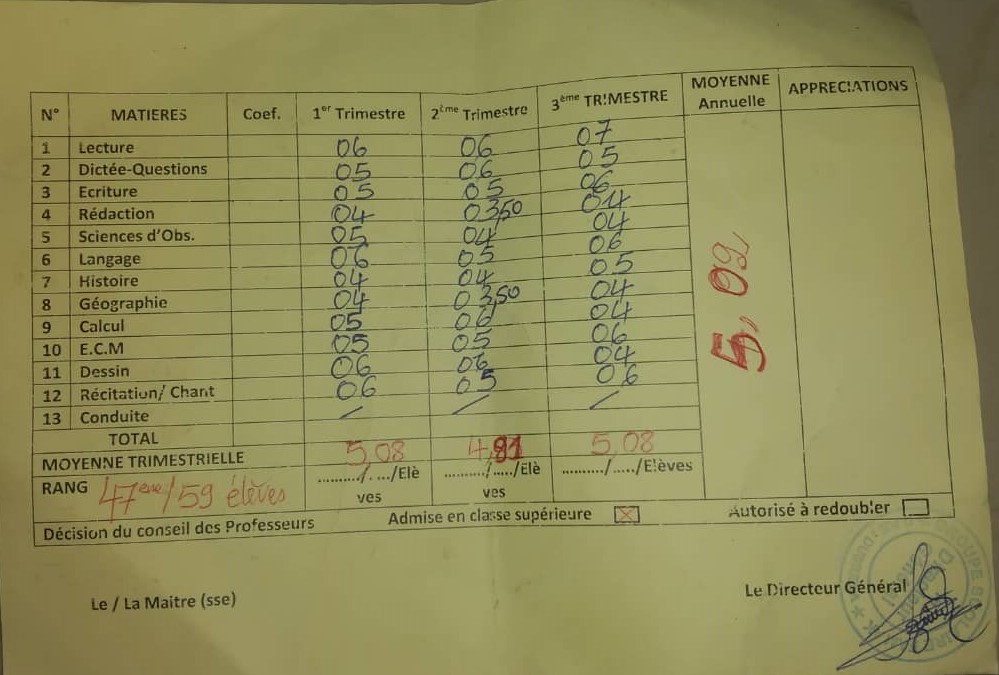 N° MATIERES Coef. 1er Trimestre 2ème Trimestre 3ème TRIMESTRE MOYENNE Annuelle APPRECIATIONS
1 Lecture 06 06 07
2 Dictée-Questions 05 06 05
3 Ecriture 05 05 06
4 Rédaction 04 03,50 04
5 Sciences d'Obs. 05 04 04
6 Langage 06 05 06
7 Histoire 04 04 05
8 Géographie 04 03,50 04
9 Calcul 05 06 04
10 E.C.M 05 05 06
11 Dessin 06 06 04
12 Récitation/ Chant 06 05 06
13 Conduite / / /
5,02
TOTAL
MOYENNE TRIMESTRIELLE 5,08 4,81 5,08
RANG 47ème/59 élèves ........../...../Elèves ........../...../Elèves ........../...../Elèves
Décision du conseil des Professeurs Admise en classe supérieure ☒ Autorisé à redoubler ☐
Le / La Maitre (sse) Le Directeur Général